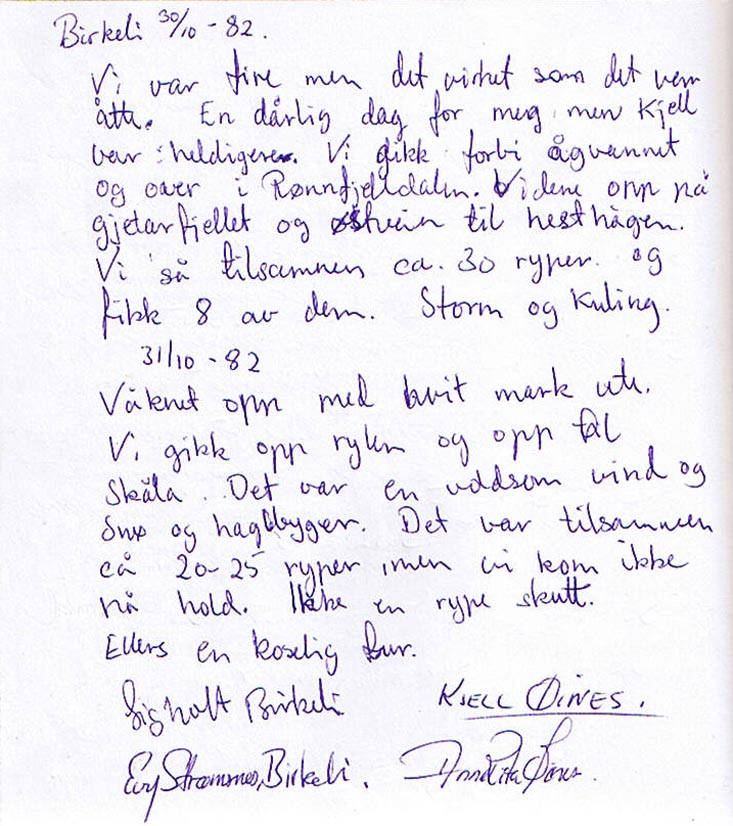 Birkeli 30/10 - 82.
Vi var fire men det virket som det vem
åtte. En dårlig dag for meg men Kjell
var heldigere. Vi gikk forbi ågvannet
og over i Rønnfjelldalen. Videre opp på
gjetarfjellet og østveien til hesthågen.
Vi så tilsammen ca. 30 ryper. og
fikk 8 av dem. Storm og Kuling.
31/10 - 82
Våknet opp med hvit mark ute.
Vi gikk opp rylen og opp tål
Skåla. Det var en voldsom vind og
Snø og haglbyger. Det var tilsammen
cå 20-25 ryper, men vi kom ikke
på hold. Ikke en rype skutt.
Ellers en koselig tur.
Birkeli KJELL ØINES.
Birkeli. Anne Rita Øines.